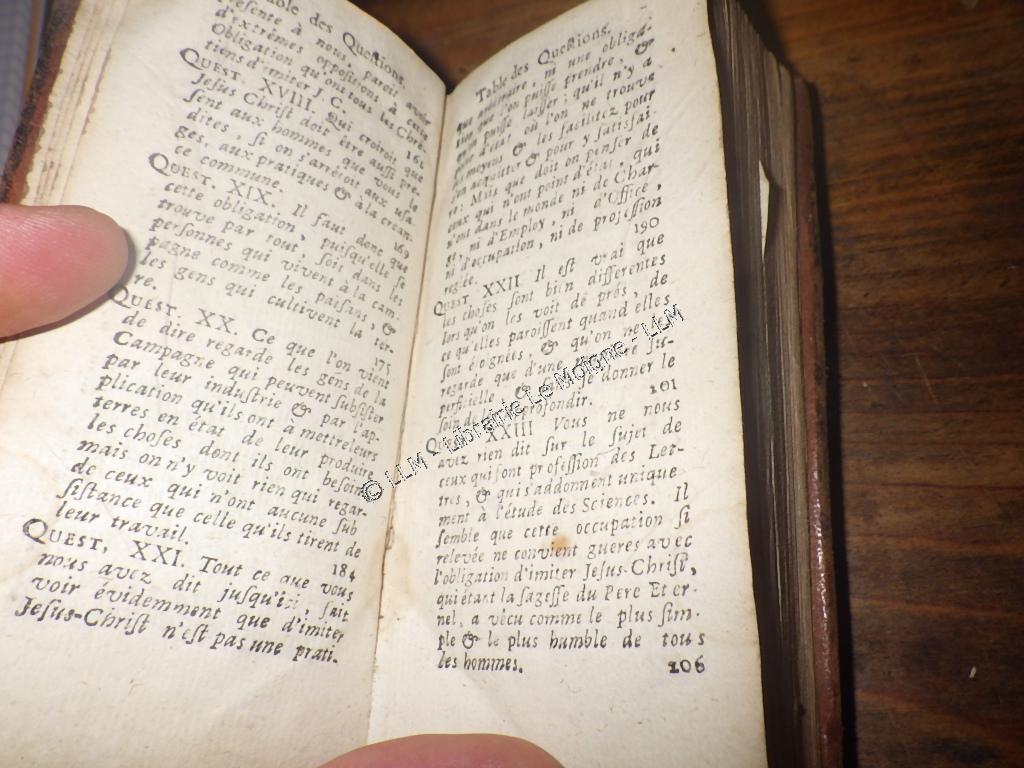 Table des Questions.
présente à nous, paroît avoir
d'extrêmes oppositions à cette
Obligation qu'ont tous les Chrê-
tiens d'imiter J. C. 161
QUEST. XVIII. Qui croiroit que
Jesus Christ doit être aussi pre-
sent aux hommes que vous le
dites, si on s'arrêtoit aux usa-
ges, aux pratiques & à la crean-
ce commune. 169
QUEST. XIX. Il faut donc que
cette obligation, puisqu'elle se
trouve par tout, soit dans les
personnes qui vivent à la cam-
pagne comme les païsans, &
les gens qui cultivent la ter-
re. 175
QUEST. XX. Ce que l'on vient
de dire regarde les gens de la
Campagne qui peuvent subsister
par leur industrie & par l'ap-
plication qu'ils ont à mettre leurs
terres en état de leur produire
les choses dont ils ont besoin
mais on n'y voit rien qui regar-
de ceux qui n'ont aucune sub
sistance que celle qu'ils tirent de
leur travail. 184
QUEST, XXI. Tout ce que vous
nous avez dit jusqu'ici, fait
voir évidemment que d'imiter
Jesus-Christ n'est pas une prati-
Table des Questions.
que ni une obliga-
tion que l'on puisse prendre, &
qu'on puisse laisser; qu'il n'y a
point d'état où l'on ne trouve
les moyens & les facilitez pour
s'en acquitter & pour y satisfai-
re: Mais que doit on penser de
ceux qui n'ont point d'état, qui
n'ont dans le monde ni de Char-
ge, ni d'Employ, ni d'Office,
ni d'occupation, ni de profession
reglée. 190
QUEST XXII Il est vrai que
les choses sont bien differentes
lors qu'on les voit de prés, de
ce qu'elles paroissent quand elles
sont éloignées, & qu'on ne
regarde que d'une su-
perficielle & se donner le
soin de approfondir. 201
QUEST XXIII Vous ne nous
avez rien dit sur le sujet de
ceux qui font profession des Let-
tres, & qui s'addonnent unique
ment à l'étude des Sciences. Il
semble que cette occupation si
relevée ne convient gueres avec
l'obligation d'imiter Jesus-Christ,
qui étant la sagesse du Pere Et er-
nel, a vècu comme le plus sim-
ple & le plus humble de tous
les hommes. 206
© LLM - Librairie Le Moigne - LLM